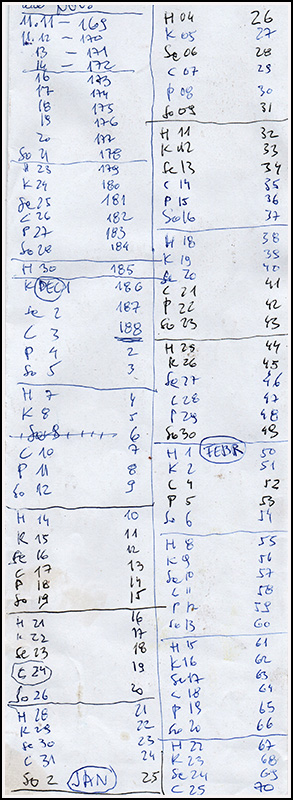 11.11 - 169
11.12 - 170
13 - 171
14 - 172
16 173
17 174
18 175
19 176
20 177
So 21 178
H 23 179
K 24 180
Se 25 181
C 26 182
P 27 183
So 28 184
H 30 185
K DEC 1 186
Se 2 187
C 3 188
P 4 2
So 5 3
H 7 4
K 8 5
6
C 10 7
P 11 8
So 12 9
H 14 10
K 15 11
Se 16 12
C 17 13
P 18 14
So 19 15
H 21 16
K 22 17
Se 23 18
C 24 19
So 26 20
H 28 21
K 29 22
Se 30 23
C 31 24
So 2 JAN 25
H 04 26
K 05 27
Se 06 28
C 07 29
P 08 30
So 09 31
H 11 32
K 12 33
Se 13 34
C 14 35
P 15 36
So 16 37
H 18 38
K 19 39
Se 20 40
C 21 41
P 22 42
So 23 43
H 25 44
K 26 45
Se 27 46
C 28 47
P 29 48
So 30 49
H 1 FEBR 50
K 2 51
C 4 52
P 5 53
So 6 54
H 8 55
K 9 56
Se 10 57
C 11 58
P 12 59
So 13 60
H 15 61
K 16 62
Se 17 63
C 18 64
P 19 65
So 20 66
H 22 67
K 23 68
Se 24 69
C 25 70